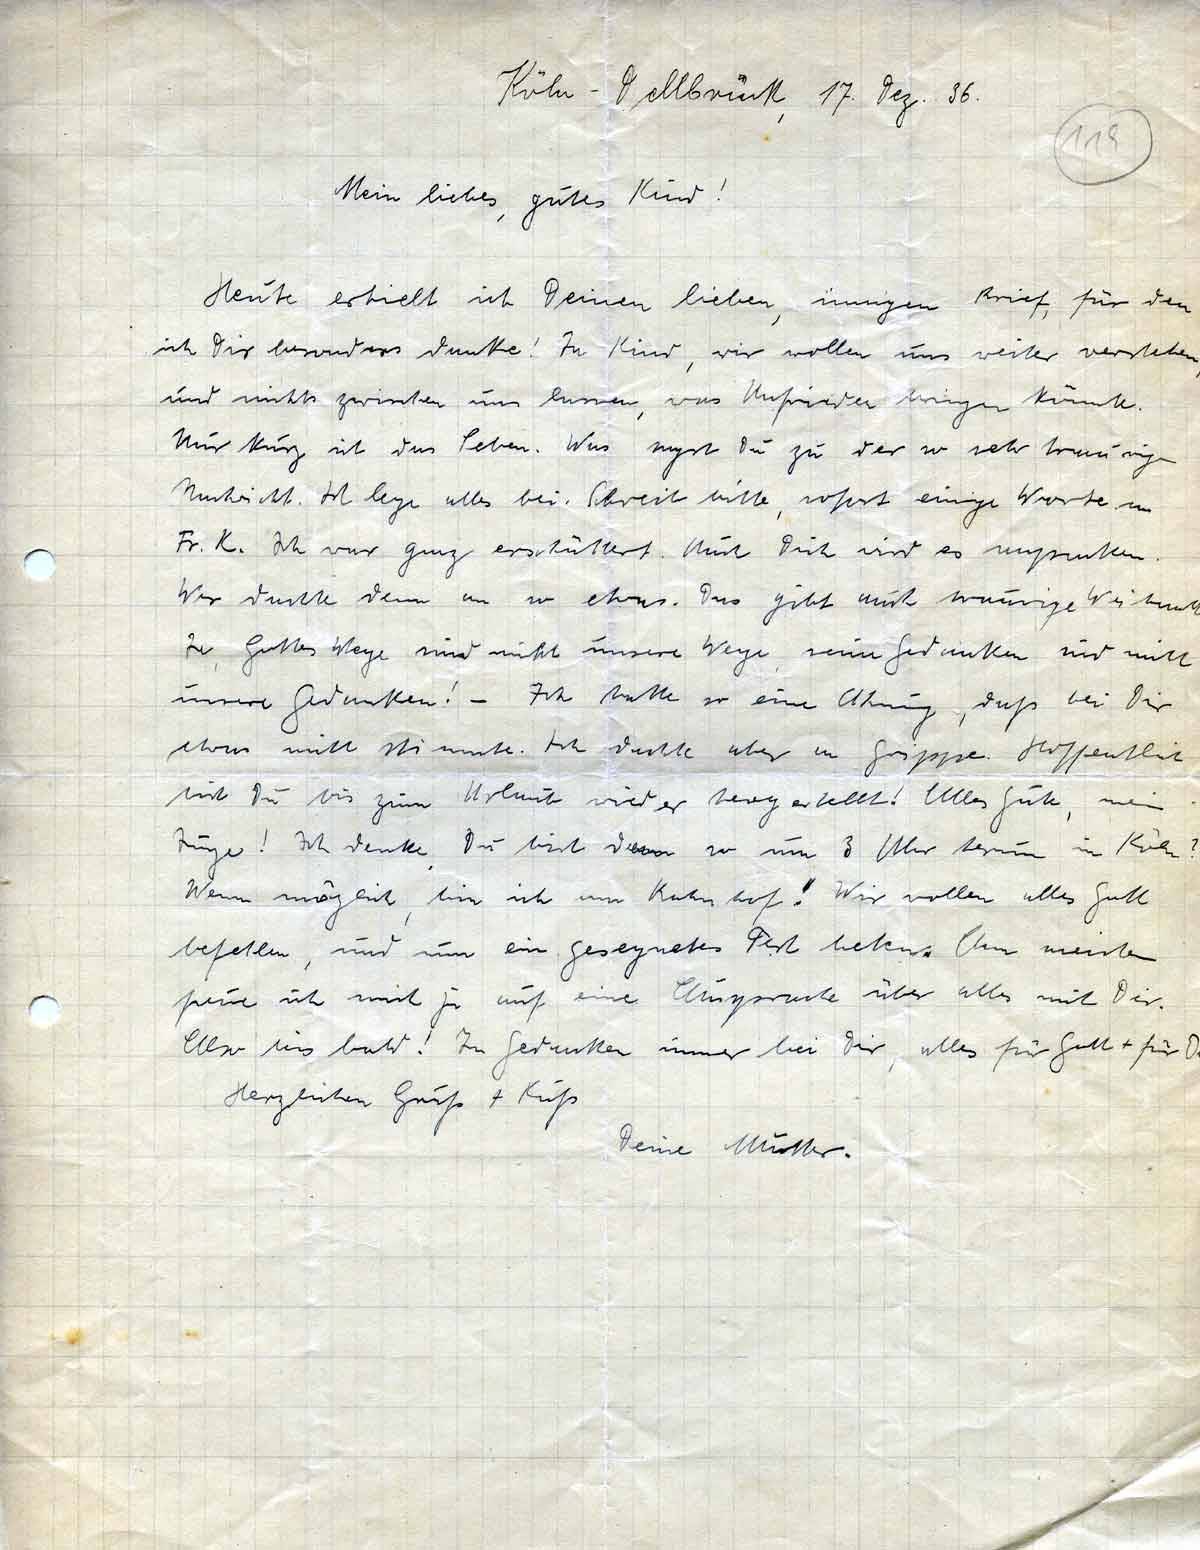 Köln-Dellbrück, 17. Dez. 36.
119
Mein liebes, gutes Kind!
Heute erhielt ich Deinen lieben, innigen Brief, für den
ich Dir besonders danke! Ja Kind, wir wollen uns weiter verstehen,
und nichts zwischen uns lassen, was Unfrieden bringen könnte.
Nur kurz ist das Leben. Was sagst Du zu der so sehr traurigen
Nachricht. Ich lege alles bei. Schreib bitte, sofort einige Worte an
Fr. K. Ich war ganz erschüttert. Auch Dich wird es
Wer dachte denn an so etwas. Das gibt auch traurige Weihnacht
Ja, Gottes Wege sind nicht unsere Wege, seine Gedanken sind nicht
unsere Gedanken! – Ich hatte so eine Ahnung, daß bei Dir
etwas nicht stimmte. Ich dachte aber an Grippe. Hoffentlich
bist Du bis zum Urlaub wieder hergestellt! Alles Gute, mein
Junge! Ich denke, Du bist dann so um 3 Uhr herum in Köln?
Wenn möglich, bin ich am Bahnhof! Wir wollen alles Gott
befehlen, und um ein gesegnetes Fest beten. Am meisten
freue ich mich ja auf eine Aussprache über alles mit Dir.
Also bis bald! In Gedanken immer bei Dir, alles für Gott + für D
Herzlichen Gruß + Kuß
Deine Mutter.